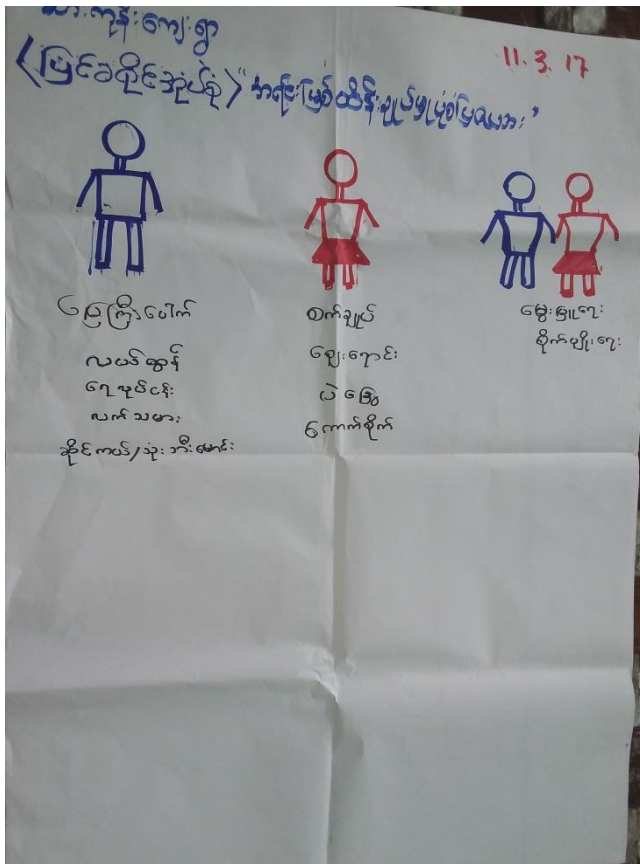 သားကုန်းကျေးရွာ
11.3.17
<ပြင်ခရိုင်အုပ်စု> "အရင်းမြစ်ထိန်းချုပ်မှုပုံစံပြဇယား"
မြေကြီးပေါက်
လယ်ထွန်
ရေလုပ်ငန်း
လက်သမား
ဆိုင်ကယ်/သုံးဘီးမောင်း
စက်ချုပ်
ဈေးရောင်း
ပဲခြွေ
ကောက်စိုက်
မွေးမြူရေး
စိုက်ပျိုးရေး